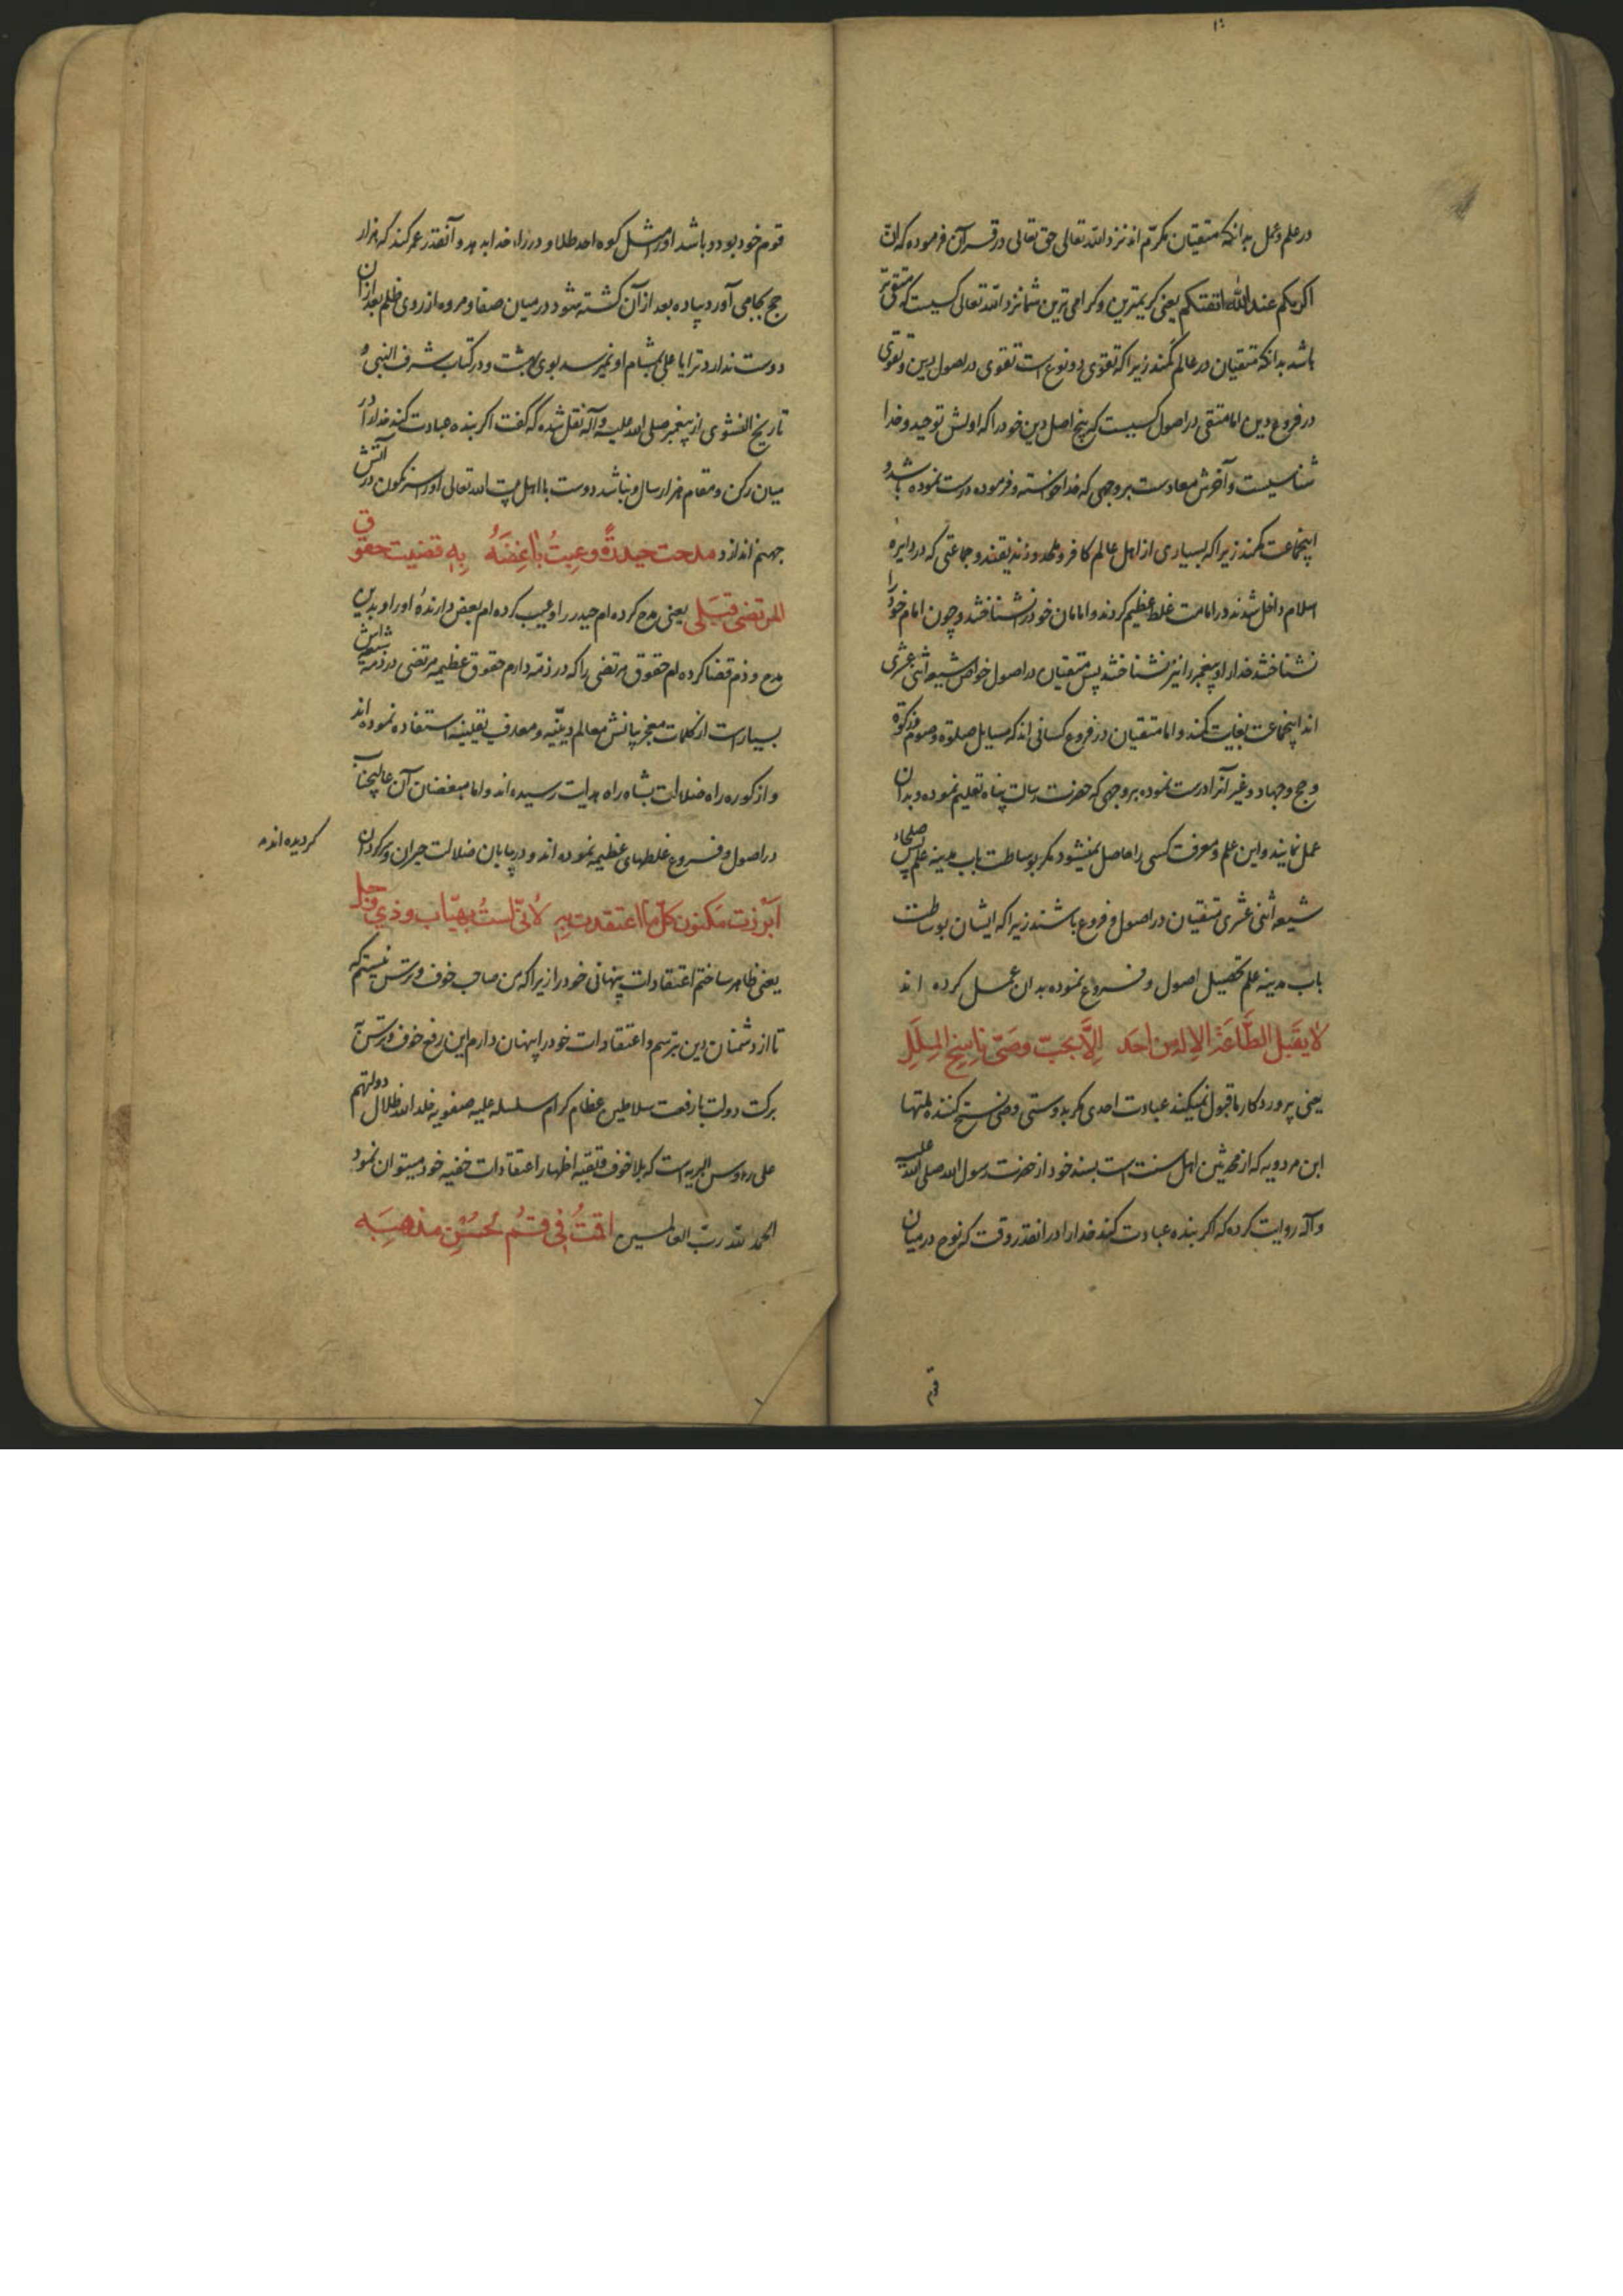 در علم و عمل بدانکه متقیان مکرّم اند نزد الله تعالی حق تعالی در قرآن فرموده که انّ
اکرمکم عند الله اتقیکم یعنی کریمترین و کرامی ترین شما نزد الله تعالی کسیست که متقی تر
باشد بدانکه متقیان در عالم کمند زیرا که تقوی دو نوع است تقوی در اصول دین و تقوی
در فروع دین اما متقی در اصول کسیست که پنج اصل دین خود را که اولش توحید و خدا
شناسیست و آخرش معادست بر وجهی که خدا خواسته و فرموده درست نموده باشد و
اینجماعت کمند زیرا که بسیاری از اهل عالم کافر و ملحد و زندیقند و جماعتی که در دایره
اسلام داخل شدند در امامت غلط عظیم کردند و امامان خود را نشناختند و چون امام خود را
نشناختند خدا را و پیغمبر را نیز نشناختند پس متقیان در اصول خواص شیعه اثنی عشری
اند اینجماعت بغایت کمند و اما متقیان در فروع کسانی اند که مسایل صلوة و صوم و زکوة
و حج و جهاد و غیر آنرا درست نموده بر وجهی که حضرت رسالت پناه تعلیم نموده و بدان
عمل نمایند و این علم و معرفت کسی را حاصل نمیشود مکر بوساطت باب مدینه علم پس صلحاء
شیعه اثنی عشری متقیان در اصول و فروع باشند زیرا که ایشان بوساطت
باب مدینه علم تحصیل اصول و فروع نموده بدان عمل کرده اند
لا یقبل الطّاعة الاله من احد الّا بحبّ وصیّ ناسخ الملل
یعنی پروردکار ما قبول نمیکند عبادت احدی مکر بدوستی وصی نسخ کننده ملتها
ابن مردویه که از محدثین اهل سنت است بسند خود از حضرت رسول الله صلی الله علیه
و آله روایت کرده که اکر بنده عبادت کند خدا را در انقدر وقت که نوح در میان
قوم
قوم خود بود و باشد او را مثل کوه احد طلا و در راه خدا بدهد و آنقدر عمر کند که هزار
حج بجا می آورد پیاده بعد از آن کشته شود در میان صفا و مروه از روی ظلم بعد از آن
دوست ندارد ترا یا علی بمشام او نمیرسد بوی بهشت و در کتاب شرف النبی و
تاریخ النسوی از پیغمبر صلی الله علیه و آله نقل شده که گفت اکر بنده عبادت کند خدا را در
میان رکن و مقام هزار سال و نباشد دوست ما اهل بیت الله تعالی او را سرنکون در آتش
جهنم اندازد مدحت حیدرة وعبت باغضه به قضیت حقوق
المرتضی قبلی یعنی مدح کرده ام حیدر را و عیب کرده ام بغض دارندهٔ او را و بدین
مدح و ذم قضا کرده ام حقوق مرتضی را که در ذمّه دارم حقوق عظیمه مرتضی در ذمّه شیعیانش
بسیارست از کلمات معجز بیانش معالم دینیّه و معارف یقینیه استفاده نموده اند
و از کوره راه ضلالت بشاه راه هدایت رسیده اند و اما مبغضان آن عالیجناب
در اصول و فروع غلطهای عظیمه نموده اند و در بیابان ضلالت حیران و سرکردان
کردیده اند
ابرزت مکنون کلّ ما اعتقدت به لانّی لست بهیّاب وذی وجل
یعنی ظاهر ساختم اعتقادات پنهانی خود را زیرا که من صاحب خوف و ترس نیستم که
تا از دشمنان دین بترسم و اعتقادات خود را پنهان دارم این رفع خوف و ترس از
برکت دولت با رفعت سلاطین عظام کرام سلسله علیه صفویه خلد الله ظلال دولتهم
علی رءوس البریه است که بلا خوف و تقیّه اظهار اعتقادات خفیه خود میتوان نمود
الحمد لله ربّ العالمین اقمت فی قم لحسن مذهبه